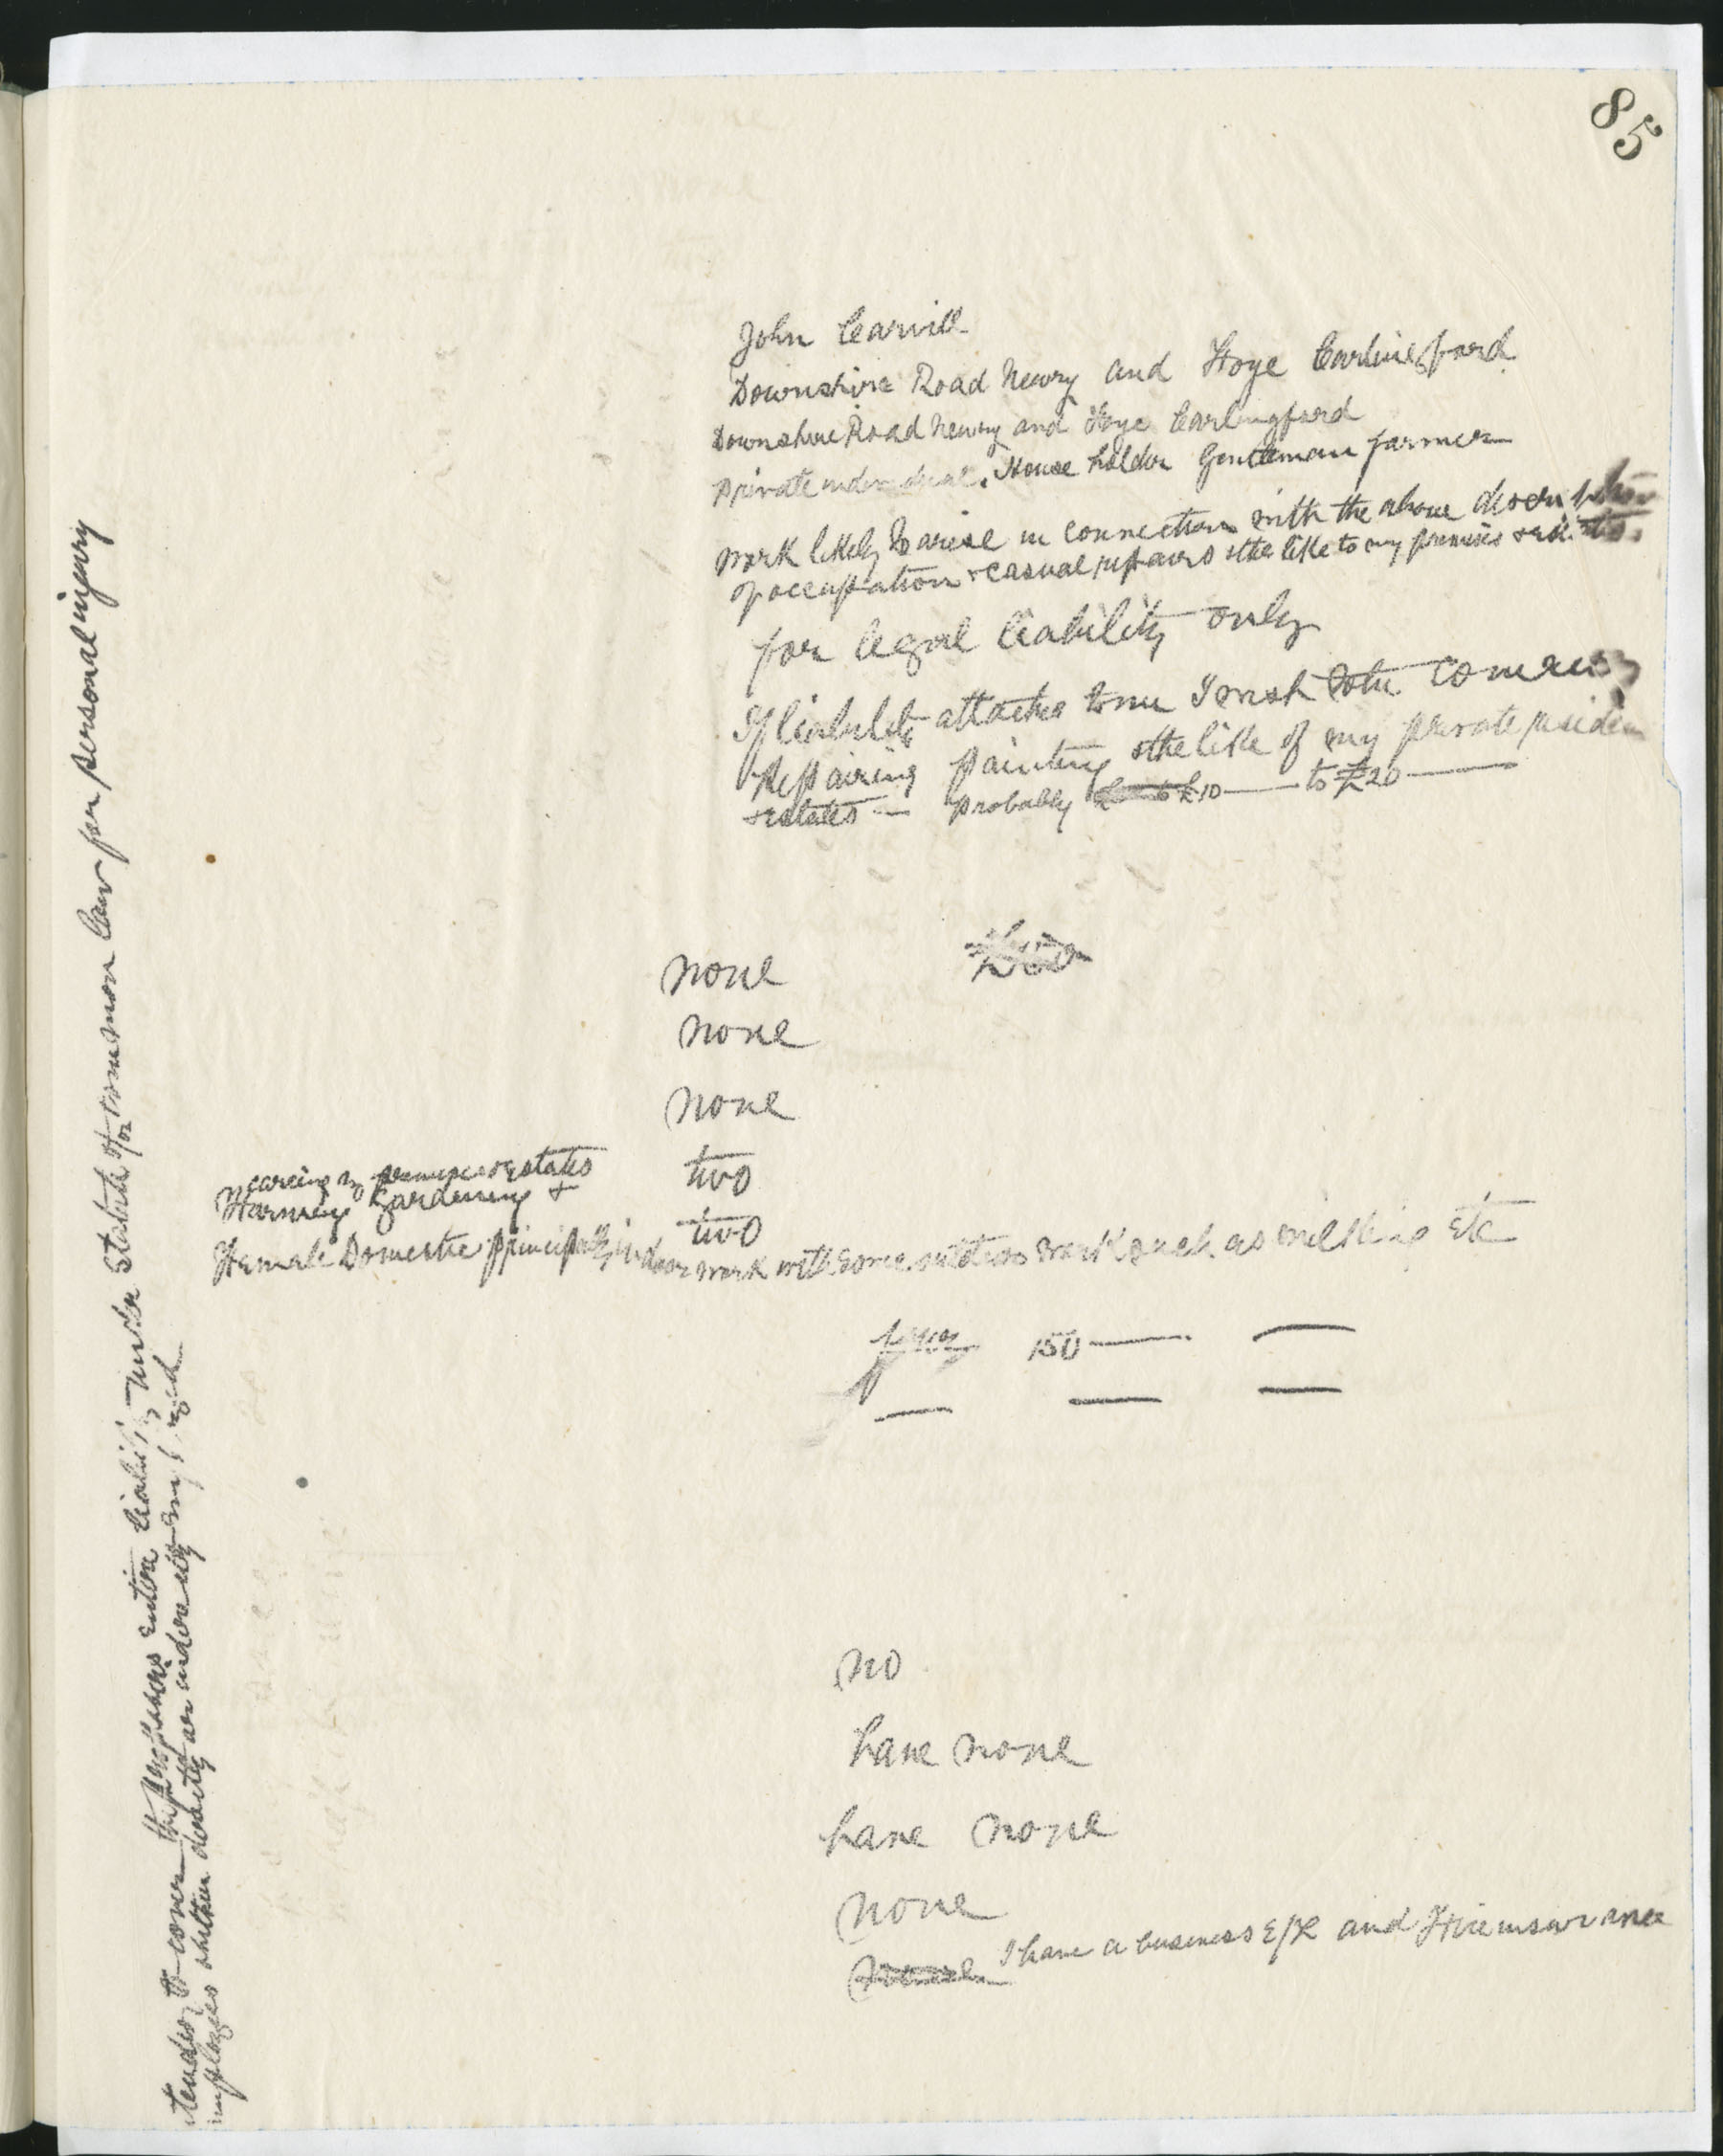 85
John Carvill
Downshire Road Newry and Foye Carlingford
Downshire Road Newry and Foye Carlingford
private individual. House holder Gentleman farmer
work likely to arise in connection with the above description
of occupation & casual repairs & the like to my premises & estates.
for legal liability only
If liability attaches to me I wish to cover
Repairing painting & the like of my private residence
& estates — probably £10 — to £20 —
none
none
none
caring my premises & estates two
Farming Gardening &
two
Female Domestic principally indoor work with some outdoor work such as milking Etc
150 — —
— — —
no
have none
have none
none
I have a business E/L and Fire insurance
tended to cover the proposers entire liability under statute &/or common law for personal injury
employees whether directly or indirectly